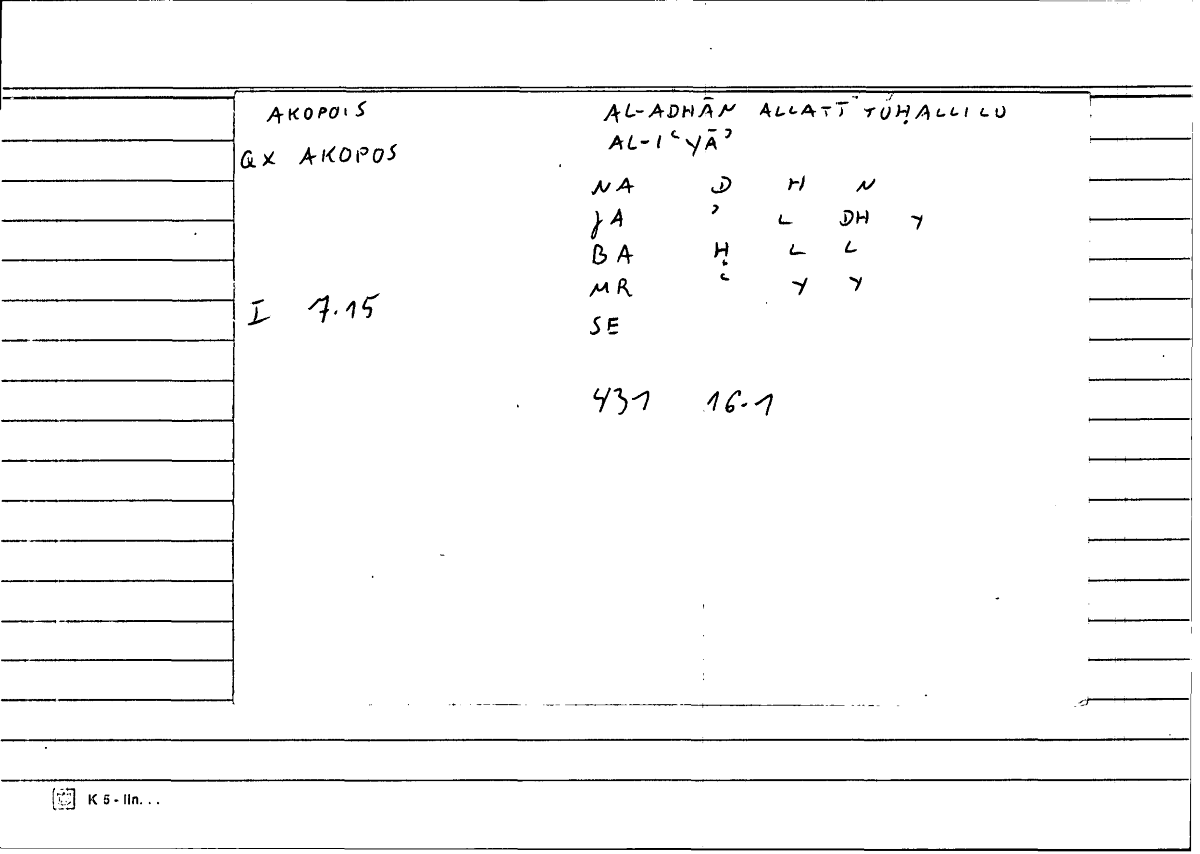 AKOPOIS
QX AKOPOS
I 7.15
AL-ADHĀN ALLATĪ TUḤALLILU
AL-Iʿ YĀʾ
NA D H N
JA ʾ L DH Y
BA Ḥ L L
MR ʿ Y Y
SE
431 16.1
K 5 - IIn. . .